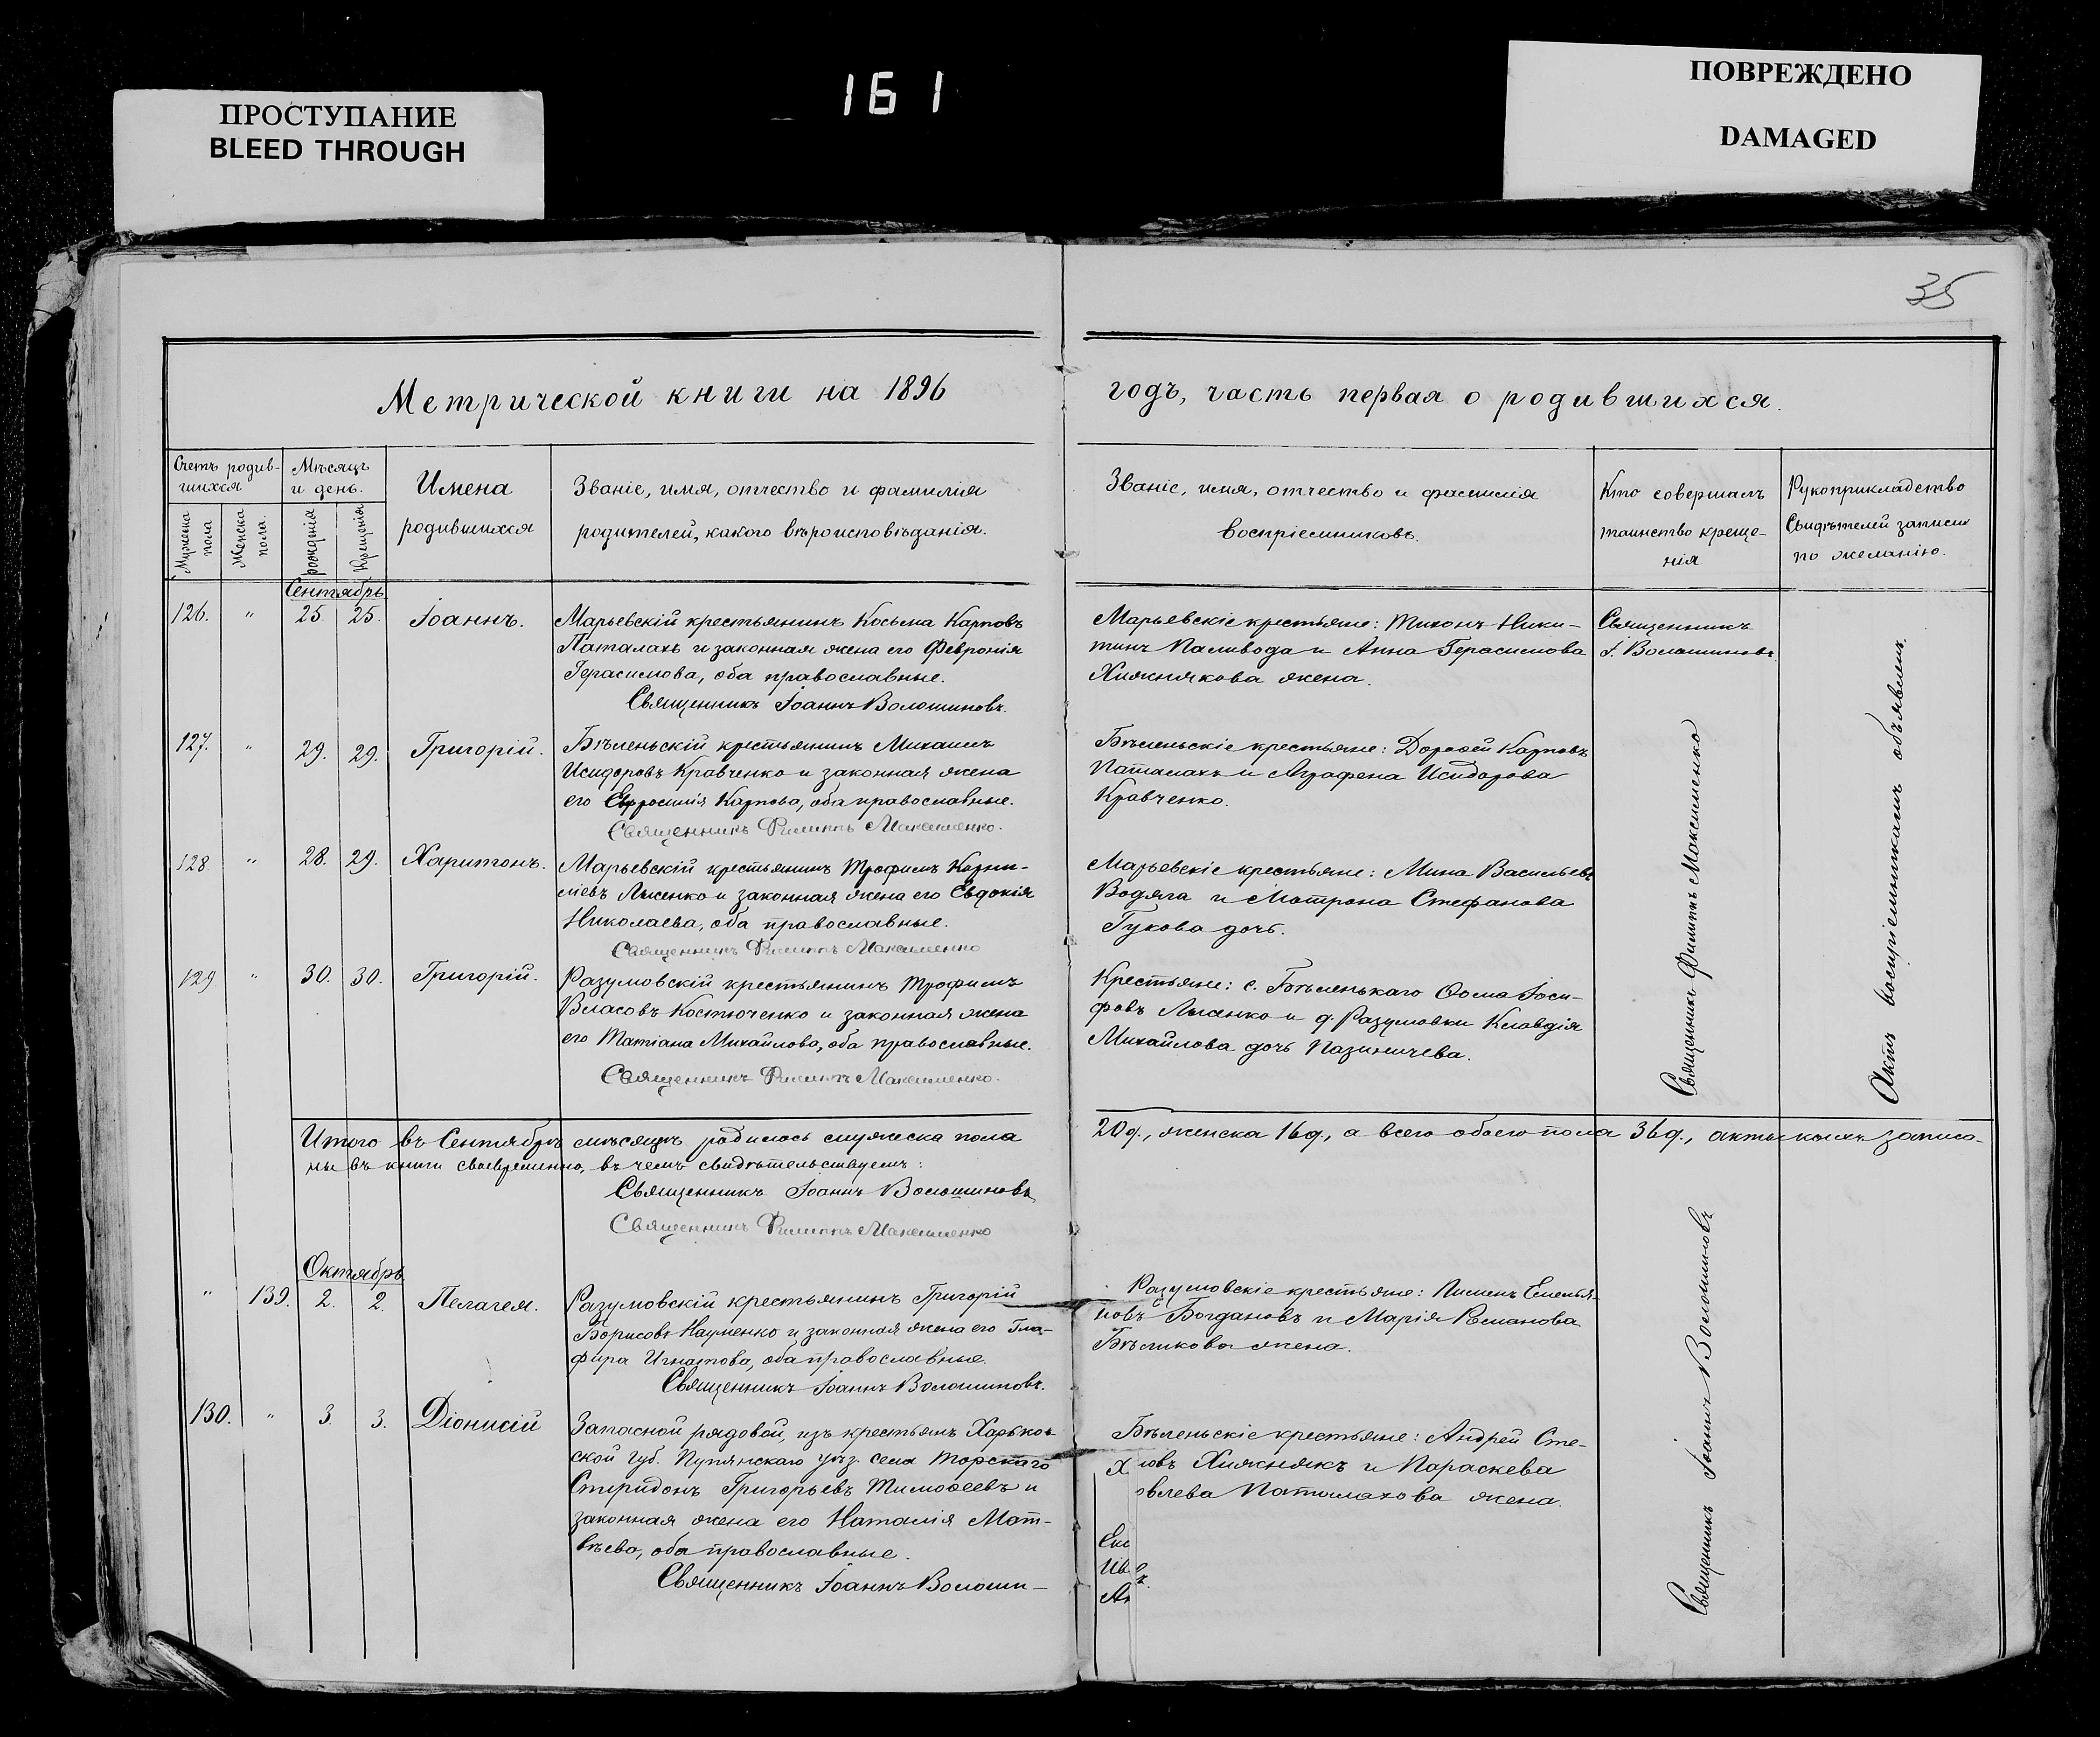 ПРОСТУПАНИЕ
BLEED THROUGH
161
ПОВРЕЖДЕНО
DAMAGED
35
Метрической книги на 1896
годъ, часть первая о родившихся.
Счетъ родив-
шихся
Мѣсяцъ
и день.
Мужеска
пола
Женска
пола.
рожденія
Крещенія
Имена
родившихся
Званіе, имя, отчество и фамилія
родителей, какого вѣроисповѣданія.
Званіе, имя, отчество и фамилія
воспріемниковъ.
Кто совершалъ
таинство креще-
нія
Рукоприкладство
Свидѣтелей записи
по желанію.
Сентябрь
126. " 25. 25. Іоаннъ.
Марьевскій крестьянинъ Косьма Карповъ
Паталахъ и законная жена его Февронія
Герасимова, оба православные.
Священникъ Іоаннъ Волошиновъ.
Марьевскіе крестьяне: Тихонъ Ники-
тинъ Паливода и Анна Герасимова
Хижнякова жена.
Священникъ
І. Волошиновъ
127. " 29. 29. Григорій.
Бѣленьскій крестьянинъ Михаилъ
Исидоровъ Кравченко и законная жена
его Евфросинія Карпова, оба православные.
Священникъ Филиппъ Максименко.
Бѣленьскіе крестьяне: Дорофей Карповъ
Паталахъ и Аграфена Исидорова
Кравченко.
128. " 28. 29. Харитонъ.
Марьевскій крестьянинъ Трофимъ Корни-
ліевъ Лысенко и законная жена его Евдокія
Николаева, оба православные.
Священникъ Филиппъ Максименко
Марьевскіе крестьяне: Мина Васильевъ
Водяга и Матрона Стефанова
Гукова дочь.
129 " 30. 30. Григорій.
Разумовскій крестьянинъ Трофимъ
Власовъ Костюченко и законная жена
его Татіана Михайлова, оба православные.
Священникъ Филиппъ Максименко.
Крестьяне: с. Бѣленькаго Ѳома Іоси-
фовъ Лысенко и д. Разумовки Клавдія
Михайлова дочь Пазиничева.
Священникъ Филиппъ Максименко
Актъ воспріемникамъ объявленъ.
Итого въ Сентябрѣ мѣсяцѣ родилось мужеска пола
20 д., женска 16 д., а всего обоего пола 36 д., акты коихъ записа-
ны въ книги своевременно, въ чемъ свидѣтельствуемъ:
Священникъ Іоаннъ Волошиновъ
Священникъ Филиппъ Максименко
Октябрь
" 139. 2. 2. Пелагея.
Разумовскій крестьянинъ Григорій
Борисовъ Науменко и законная жена его Гла-
фира Игнатова, оба православные.
Священникъ Іоаннъ Волошиновъ.
Разумовскіе крестьяне: Пименъ Емелья-
новъ Богдановъ и Марія Романова
Бѣликова жена.
130. " 3. 3. Діонисій
Запасной рядовой, изъ крестьянъ Харьков-
ской губ. Купянскаго уѣз. села Торскаго
Спиридонъ Григорьевъ Тимофеевъ и
законная жена его Наталія Мат-
вѣева, оба православные.
Священникъ Іоаннъ Волоши-
Бѣленьскіе крестьяне: Андрей Сте-
Х новъ Хижнякъ и Параскева
овлева Паталахова жена.
Ека
Ив
Ан
Священникъ Іоаннъ Волошиновъ